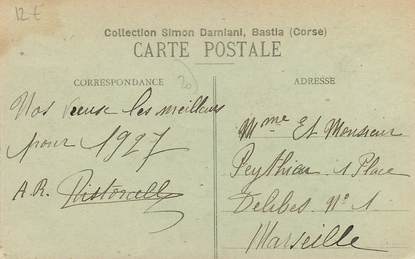 12€
Collection Simon Damiani, Bastia (Corse)
CARTE POSTALE
CORRESPONDANCE
20
ADRESSE
Nos veux les meilleurs
pour 1927
A.R.
Mme Et Monsieur
Peythieu 1 Place
Delibes No 1
Marseille